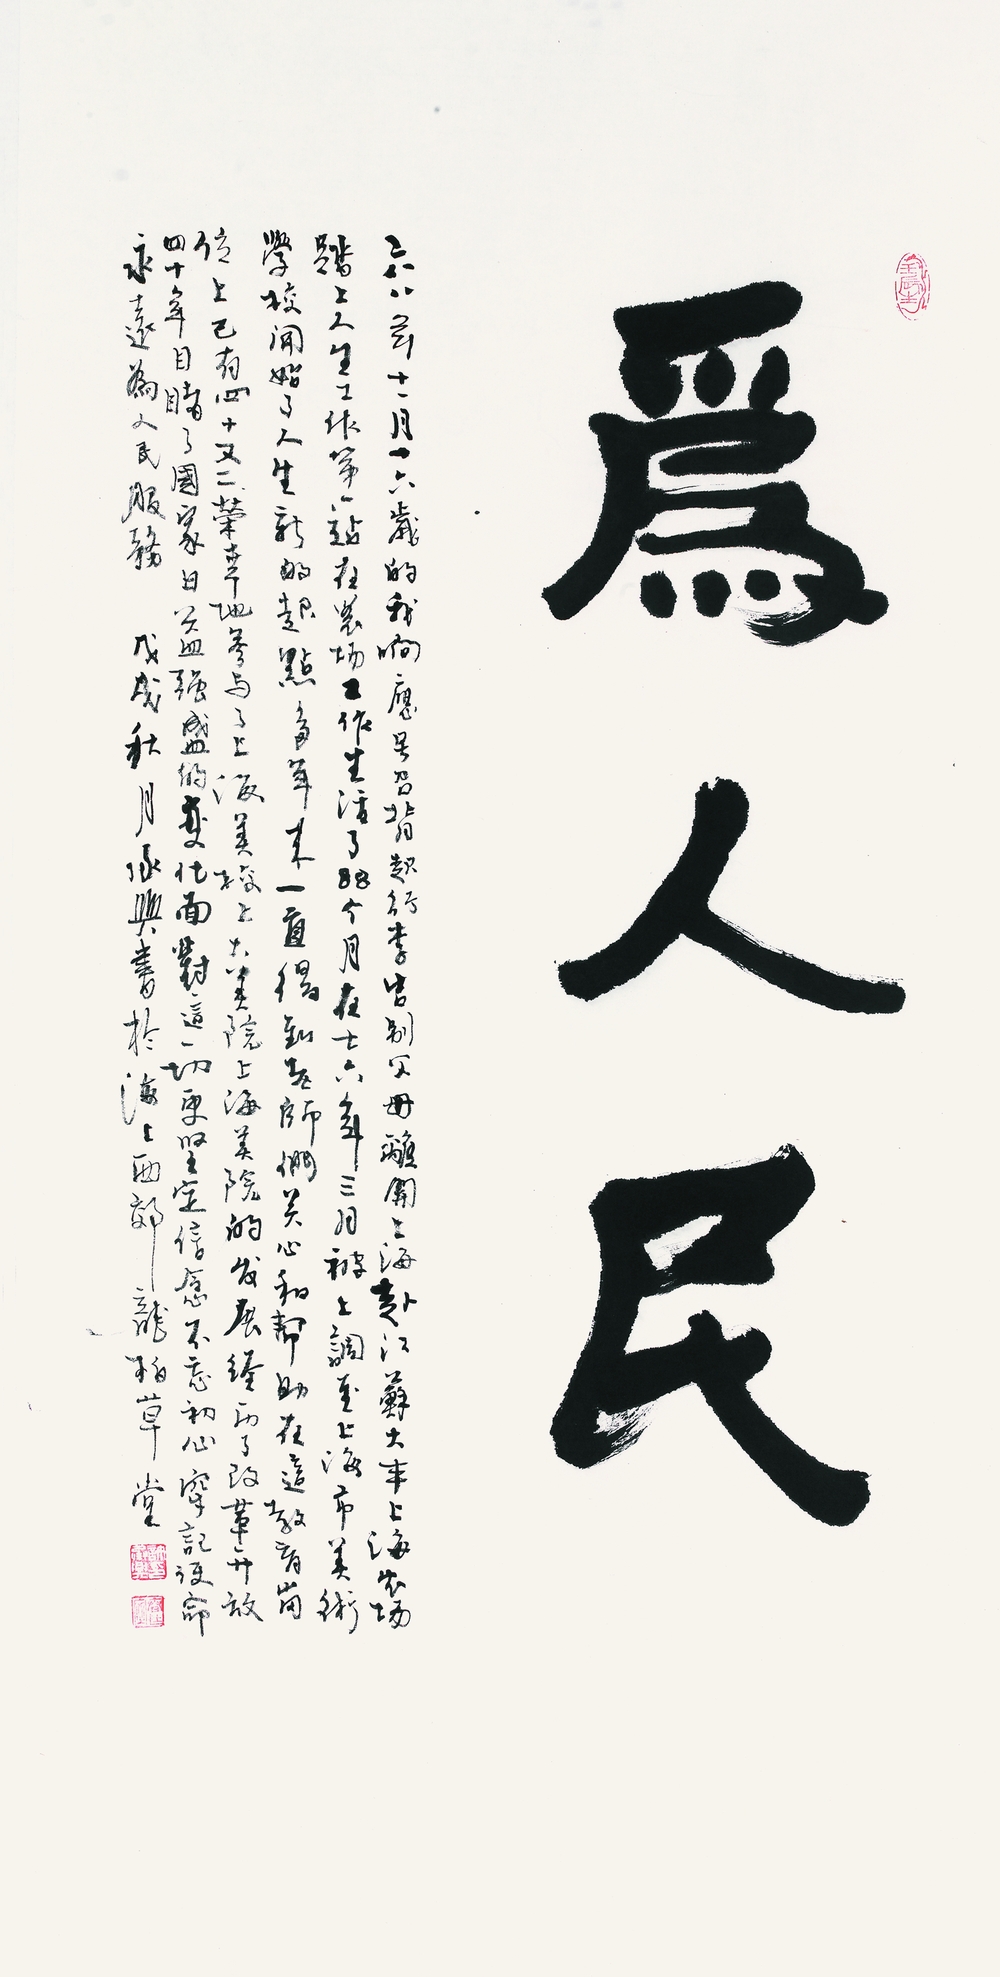 為人民
六八年十一月十六歲的我响應号召背起行李告别父母離開上海赴江蘇大丰上海农场
踏上人生工作第一站在農场工作生活了88个月在七六年三月被上調至上海市美術
學校開始了人生新的起點多年来一直得到老師們关心和幫助在這教育崗
位上已有四十又二荣幸地参与了上海美校上大美院上海美院的发展經历了改革开放
四十年目睹了國家日益强盛的变化面對這一切更坚定信念不忘初心牢記使命
永遠為人民服務 戊戌秋月承興書於海上西郊龍柏草堂